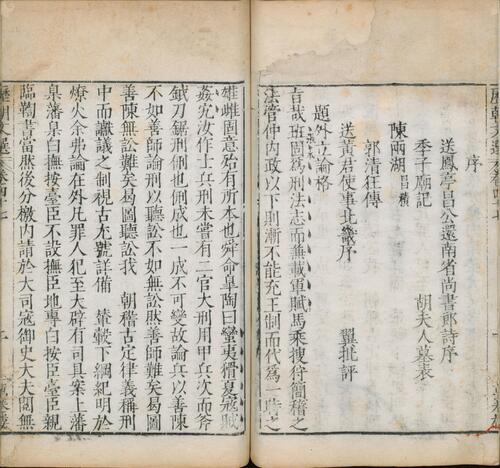 序
送鳳亭昌公還南省尚書郎詩序
季子廟記
胡夫人墓表
陳兩湖昌積
郭清狂傳
送黃君使事北畿序
翼批評
題外立論格
旨哉班固爲刑法志而兼載軍賦馬乘搜狩簡稽之
法管仲內政以下則漸不能充王制而代爲一時之
雄雌固意殆有所本也舜命臯陶曰蠻夷猾夏寇賊
姦宄汝作士兵刑未嘗有二官大刑用甲兵次而斧
鉞刀鋸刑例也例成也一成不可變故論兵以善陳
不如善師論刑以聽訟不如無訟然善師難矣曷圖
善陳無訟難矣曷圖聽訟我 朝稽古定律義稱刑
中而讞議之制視古尤號詳備 輦轂下綱紀明於
燎火余弗論在外凡罪人犯至大辟有司具案上藩
臬藩臬白撫按臺臣不設撫臣地專白按臣臺臣親
臨鞫書當然後分檄內請於大司寇御史大夫閱無
歷朝文選
卷四十七